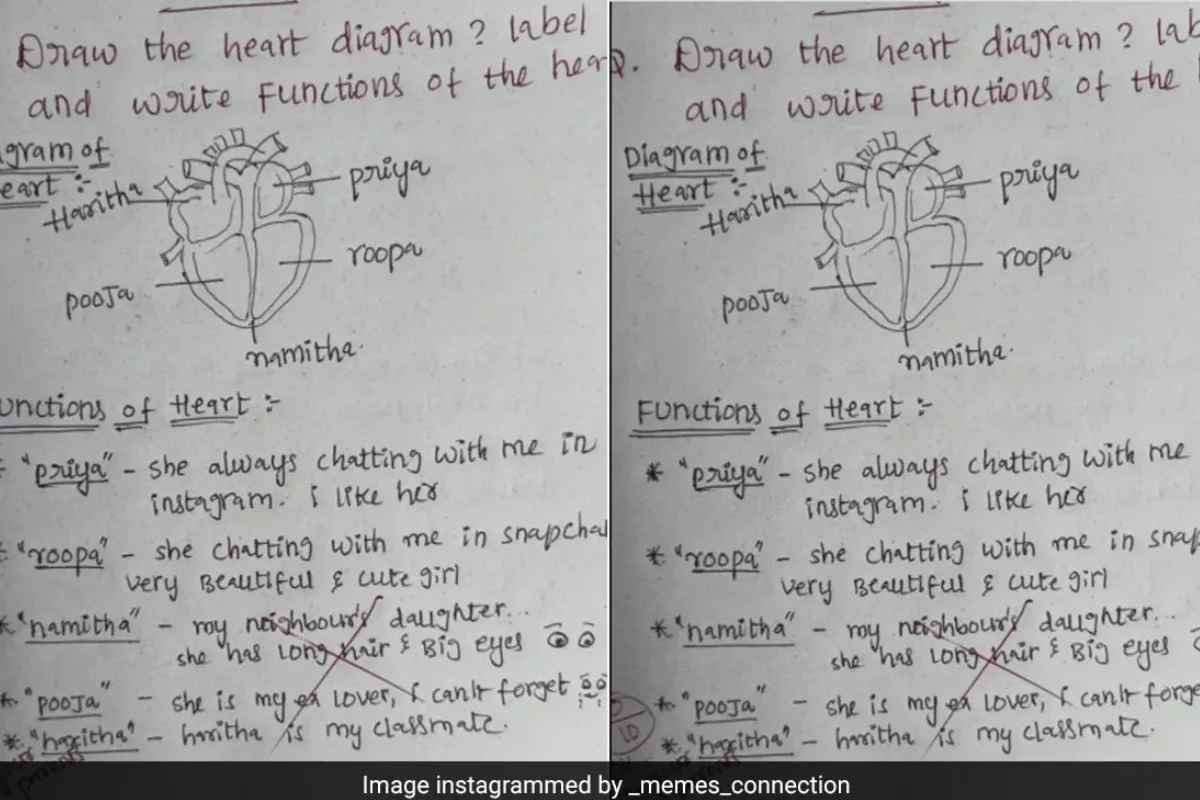 Draw the heart diagram? label
and write Functions of the hear
gram of
eart :-
Haritha
priya
roopa
pooja
namitha.
unctions of Heart :-
"priya" - she always chatting with me in
instagram. i like her
* "roopa" - she chatting with me in snapcha
very Beautiful & cute girl
* "namitha" - my neighbour's daughter...
she has long hair & Big eyes
* "pooja" - she is my ex lover, i can't forget
* "haritha" - haritha is my classmate.
Q. Draw the heart diagram? lab
and write Functions of the
Diagram of
Heart :-
Haritha
priya
roopa
pooja
namitha.
Functions of Heart :-
* "priya" - she always chatting with me
instagram. i like her
* "roopa" - she chatting with me in snap
very Beautiful & cute girl
* "namitha" - my neighbour's daughter...
she has long hair & Big eyes
* "pooja" - she is my ex lover, i can't forge
10
* "haritha" - haritha is my classmate.
Image instagrammed by _memes_connection